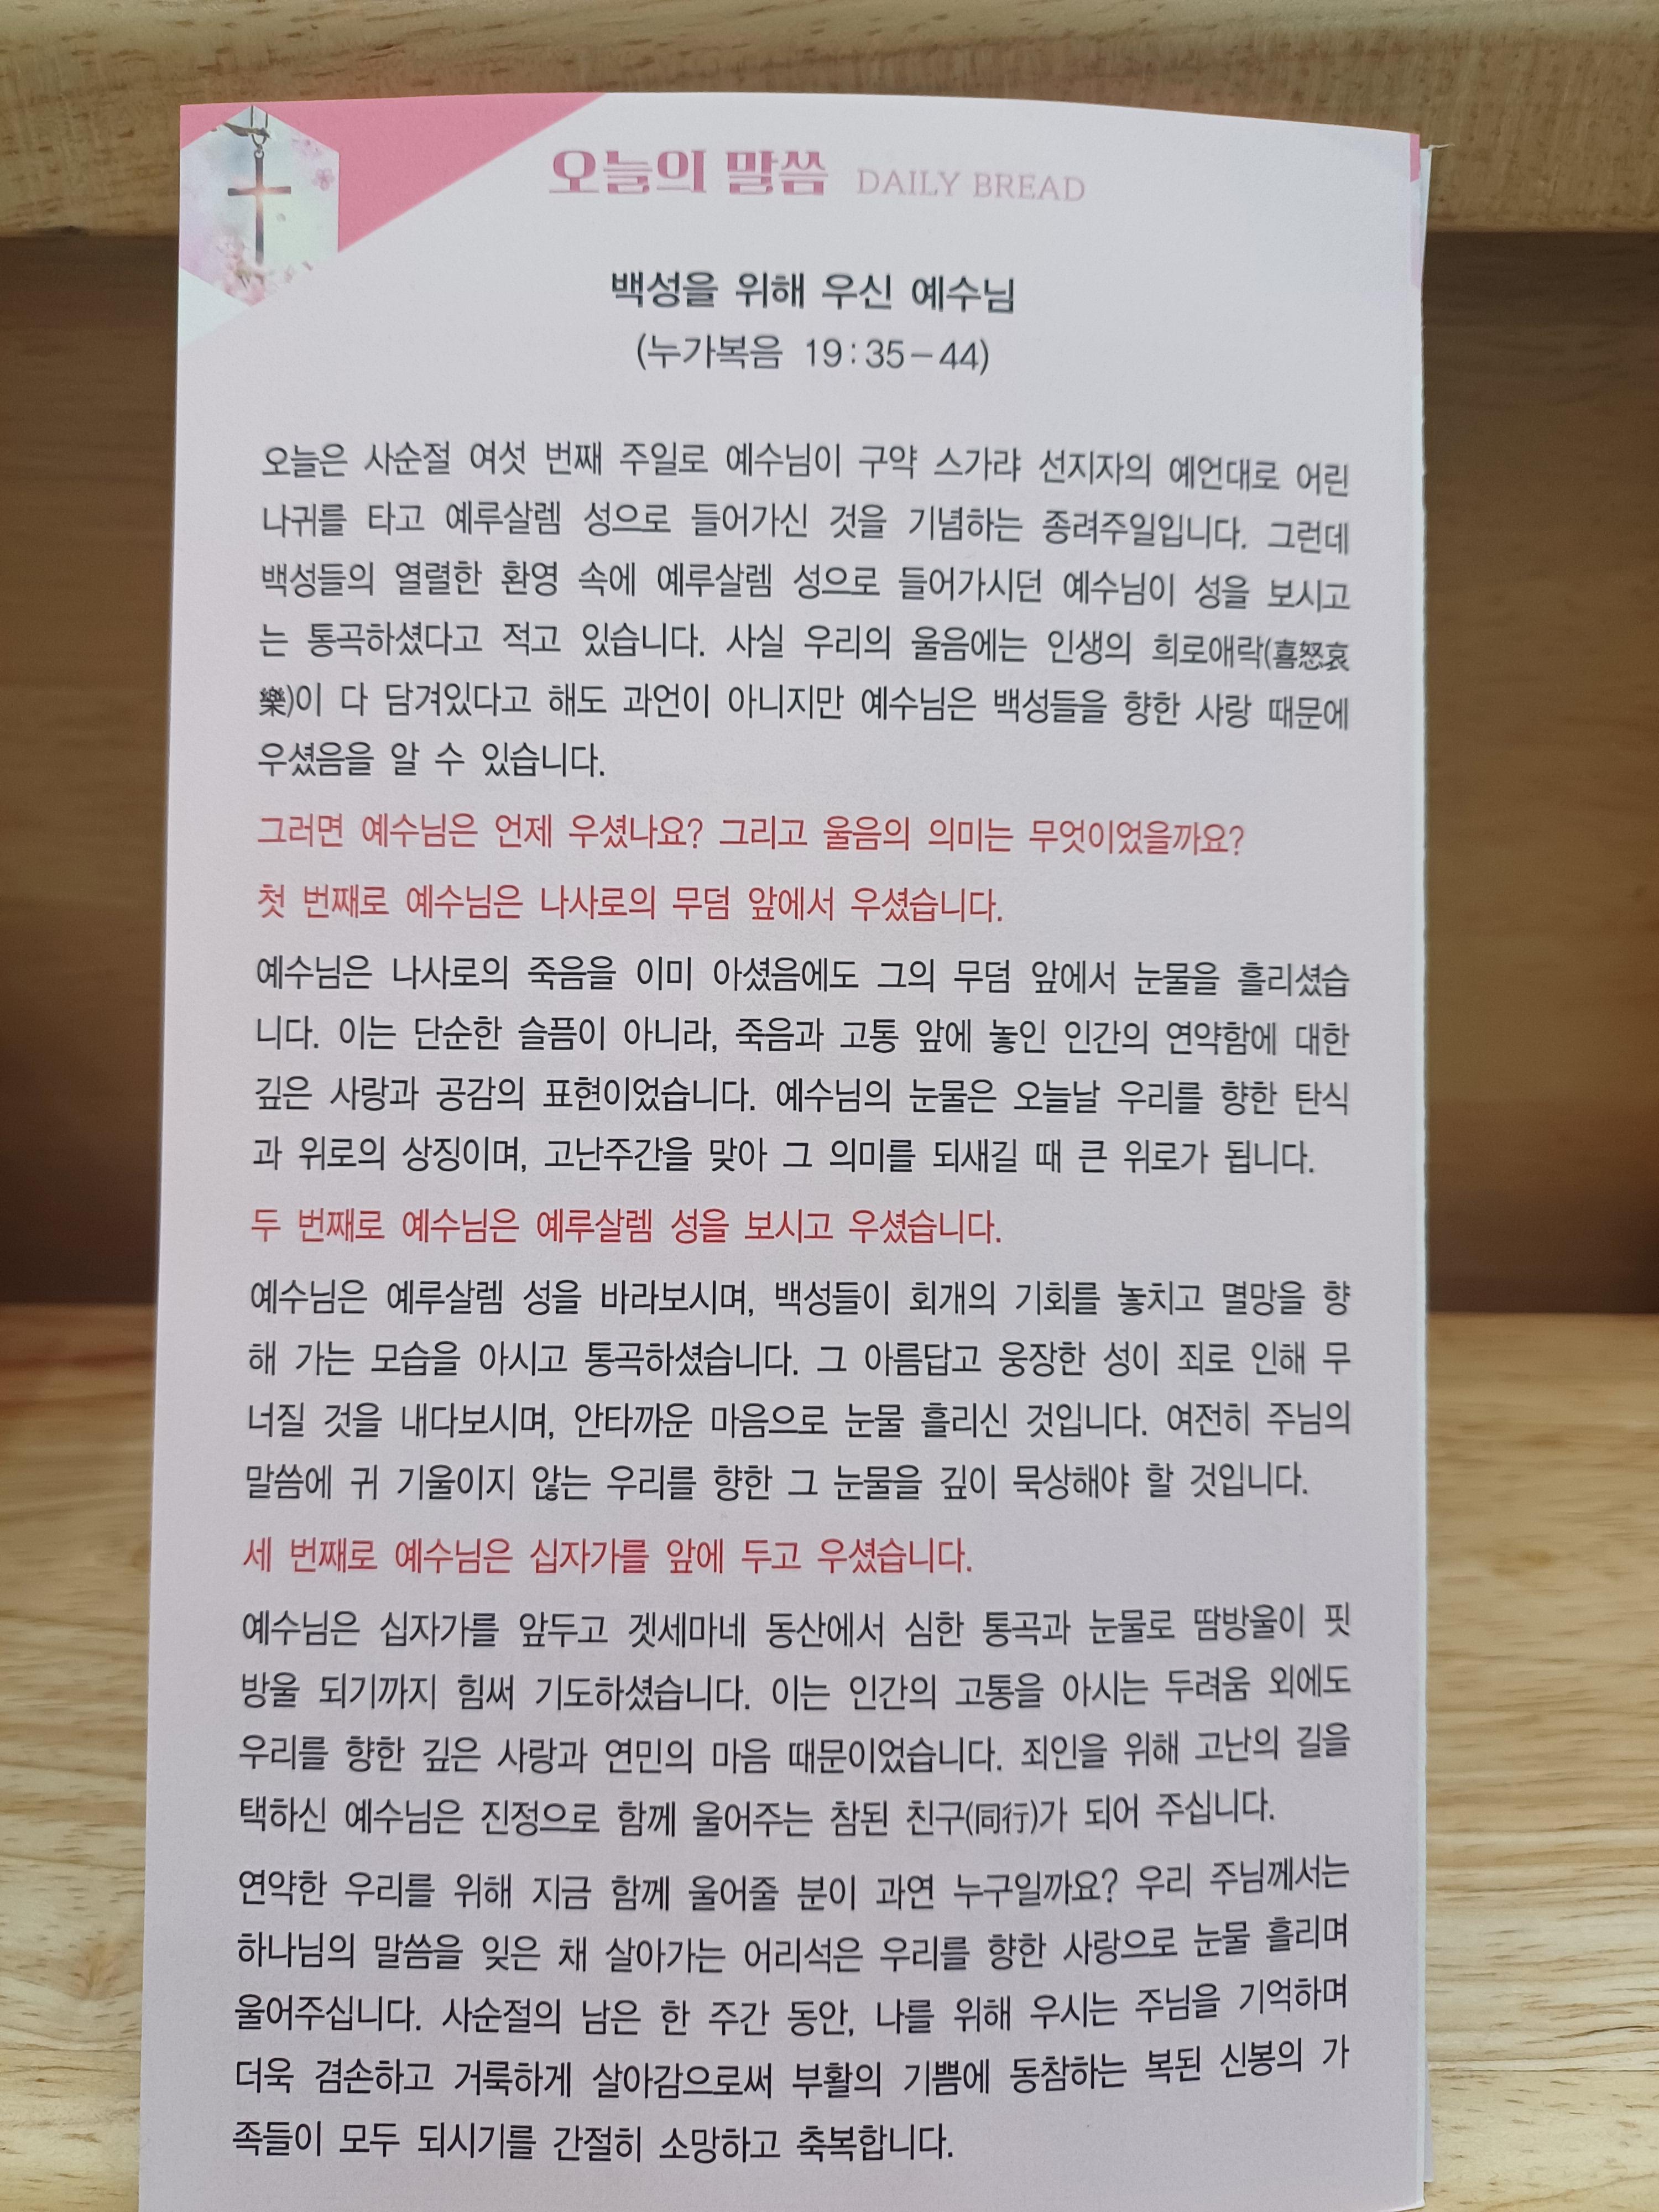 오늘의 말씀 DAILY BREAD
백성을 위해 우신 예수님
(누가복음 19:35-44)
오늘은 사순절 여섯 번째 주일로 예수님이 구약 스가랴 선지자의 예언대로 어린
나귀를 타고 예루살렘 성으로 들어가신 것을 기념하는 종려주일입니다. 그런데
백성들의 열렬한 환영 속에 예루살렘 성으로 들어가시던 예수님이 성을 보시고
는 통곡하셨다고 적고 있습니다. 사실 우리의 울음에는 인생의 희로애락(喜怒哀
樂)이 다 담겨있다고 해도 과언이 아니지만 예수님은 백성들을 향한 사랑 때문에
우셨음을 알 수 있습니다.
그러면 예수님은 언제 우셨나요? 그리고 울음의 의미는 무엇이었을까요?
첫 번째로 예수님은 나사로의 무덤 앞에서 우셨습니다.
예수님은 나사로의 죽음을 이미 아셨음에도 그의 무덤 앞에서 눈물을 흘리셨습
니다. 이는 단순한 슬픔이 아니라, 죽음과 고통 앞에 놓인 인간의 연약함에 대한
깊은 사랑과 공감의 표현이었습니다. 예수님의 눈물은 오늘날 우리를 향한 탄식
과 위로의 상징이며, 고난주간을 맞아 그 의미를 되새길 때 큰 위로가 됩니다.
두 번째로 예수님은 예루살렘 성을 보시고 우셨습니다.
예수님은 예루살렘 성을 바라보시며, 백성들이 회개의 기회를 놓치고 멸망을 향
해 가는 모습을 아시고 통곡하셨습니다. 그 아름답고 웅장한 성이 죄로 인해 무
너질 것을 내다보시며, 안타까운 마음으로 눈물 흘리신 것입니다. 여전히 주님의
말씀에 귀 기울이지 않는 우리를 향한 그 눈물을 깊이 묵상해야 할 것입니다.
세 번째로 예수님은 십자가를 앞에 두고 우셨습니다.
예수님은 십자가를 앞두고 겟세마네 동산에서 심한 통곡과 눈물로 땀방울이 핏
방울 되기까지 힘써 기도하셨습니다. 이는 인간의 고통을 아시는 두려움 외에도
우리를 향한 깊은 사랑과 연민의 마음 때문이었습니다. 죄인을 위해 고난의 길을
택하신 예수님은 진정으로 함께 울어주는 참된 친구(同行)가 되어 주십니다.
연약한 우리를 위해 지금 함께 울어줄 분이 과연 누구일까요? 우리 주님께서는
하나님의 말씀을 잊은 채 살아가는 어리석은 우리를 향한 사랑으로 눈물 흘리며
울어주십니다. 사순절의 남은 한 주간 동안, 나를 위해 우시는 주님을 기억하며
더욱 겸손하고 거룩하게 살아감으로써 부활의 기쁨에 동참하는 복된 신봉의 가
족들이 모두 되시기를 간절히 소망하고 축복합니다.